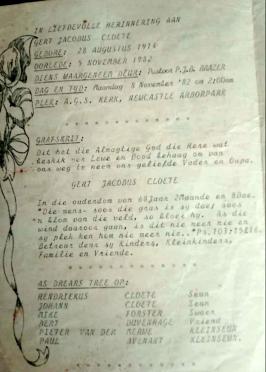 IN LIEFDEVOLLE HERINNERING AAN
GERT JACOBUS CLOETE
GEBORE: 28 AUGUSTUS 1914
OORLEDE: 5 NOVEMBER 1982
DIENS WAARGENEEM DEUR: Pastoor P.J.B.
DAG EN TYD: Maandag 8 November '82 om 2:00nm
PLEK: A.G.S. KERK, NEWCASTLE ARBORPARK
GRAFSKRIF:
Dit het die Almagtige God die Here wat
beskik oor Lewe en Dood behaag om van
ons weg te neem ons geliefde Vader en Oupa.
GERT JACOBUS CLOETE
In die ouderdom van 68Jaar 2Maande en 8Dae.
"Die mens- soos die gras is sy dae; soos
'n blom van die veld, so bloei hy. As die
wind daaroor gaan, is dit nie meer nie en
sy plek ken hom nie meer nie." Ps.103:15&16.
Betreur deur sy Kinders, Kleinkinders,
Familie en Vriende.
AS DRAERS TREE OP:
HENDRIEKUS CLOETE Seun
JOHANN CLOETE Seun
FORSTER Swaer
BERT DUVENHAGE Vriend
PIETER VAN DER MERWE KLEINSEUN
PAUL AVENANT KLEINSEUN.